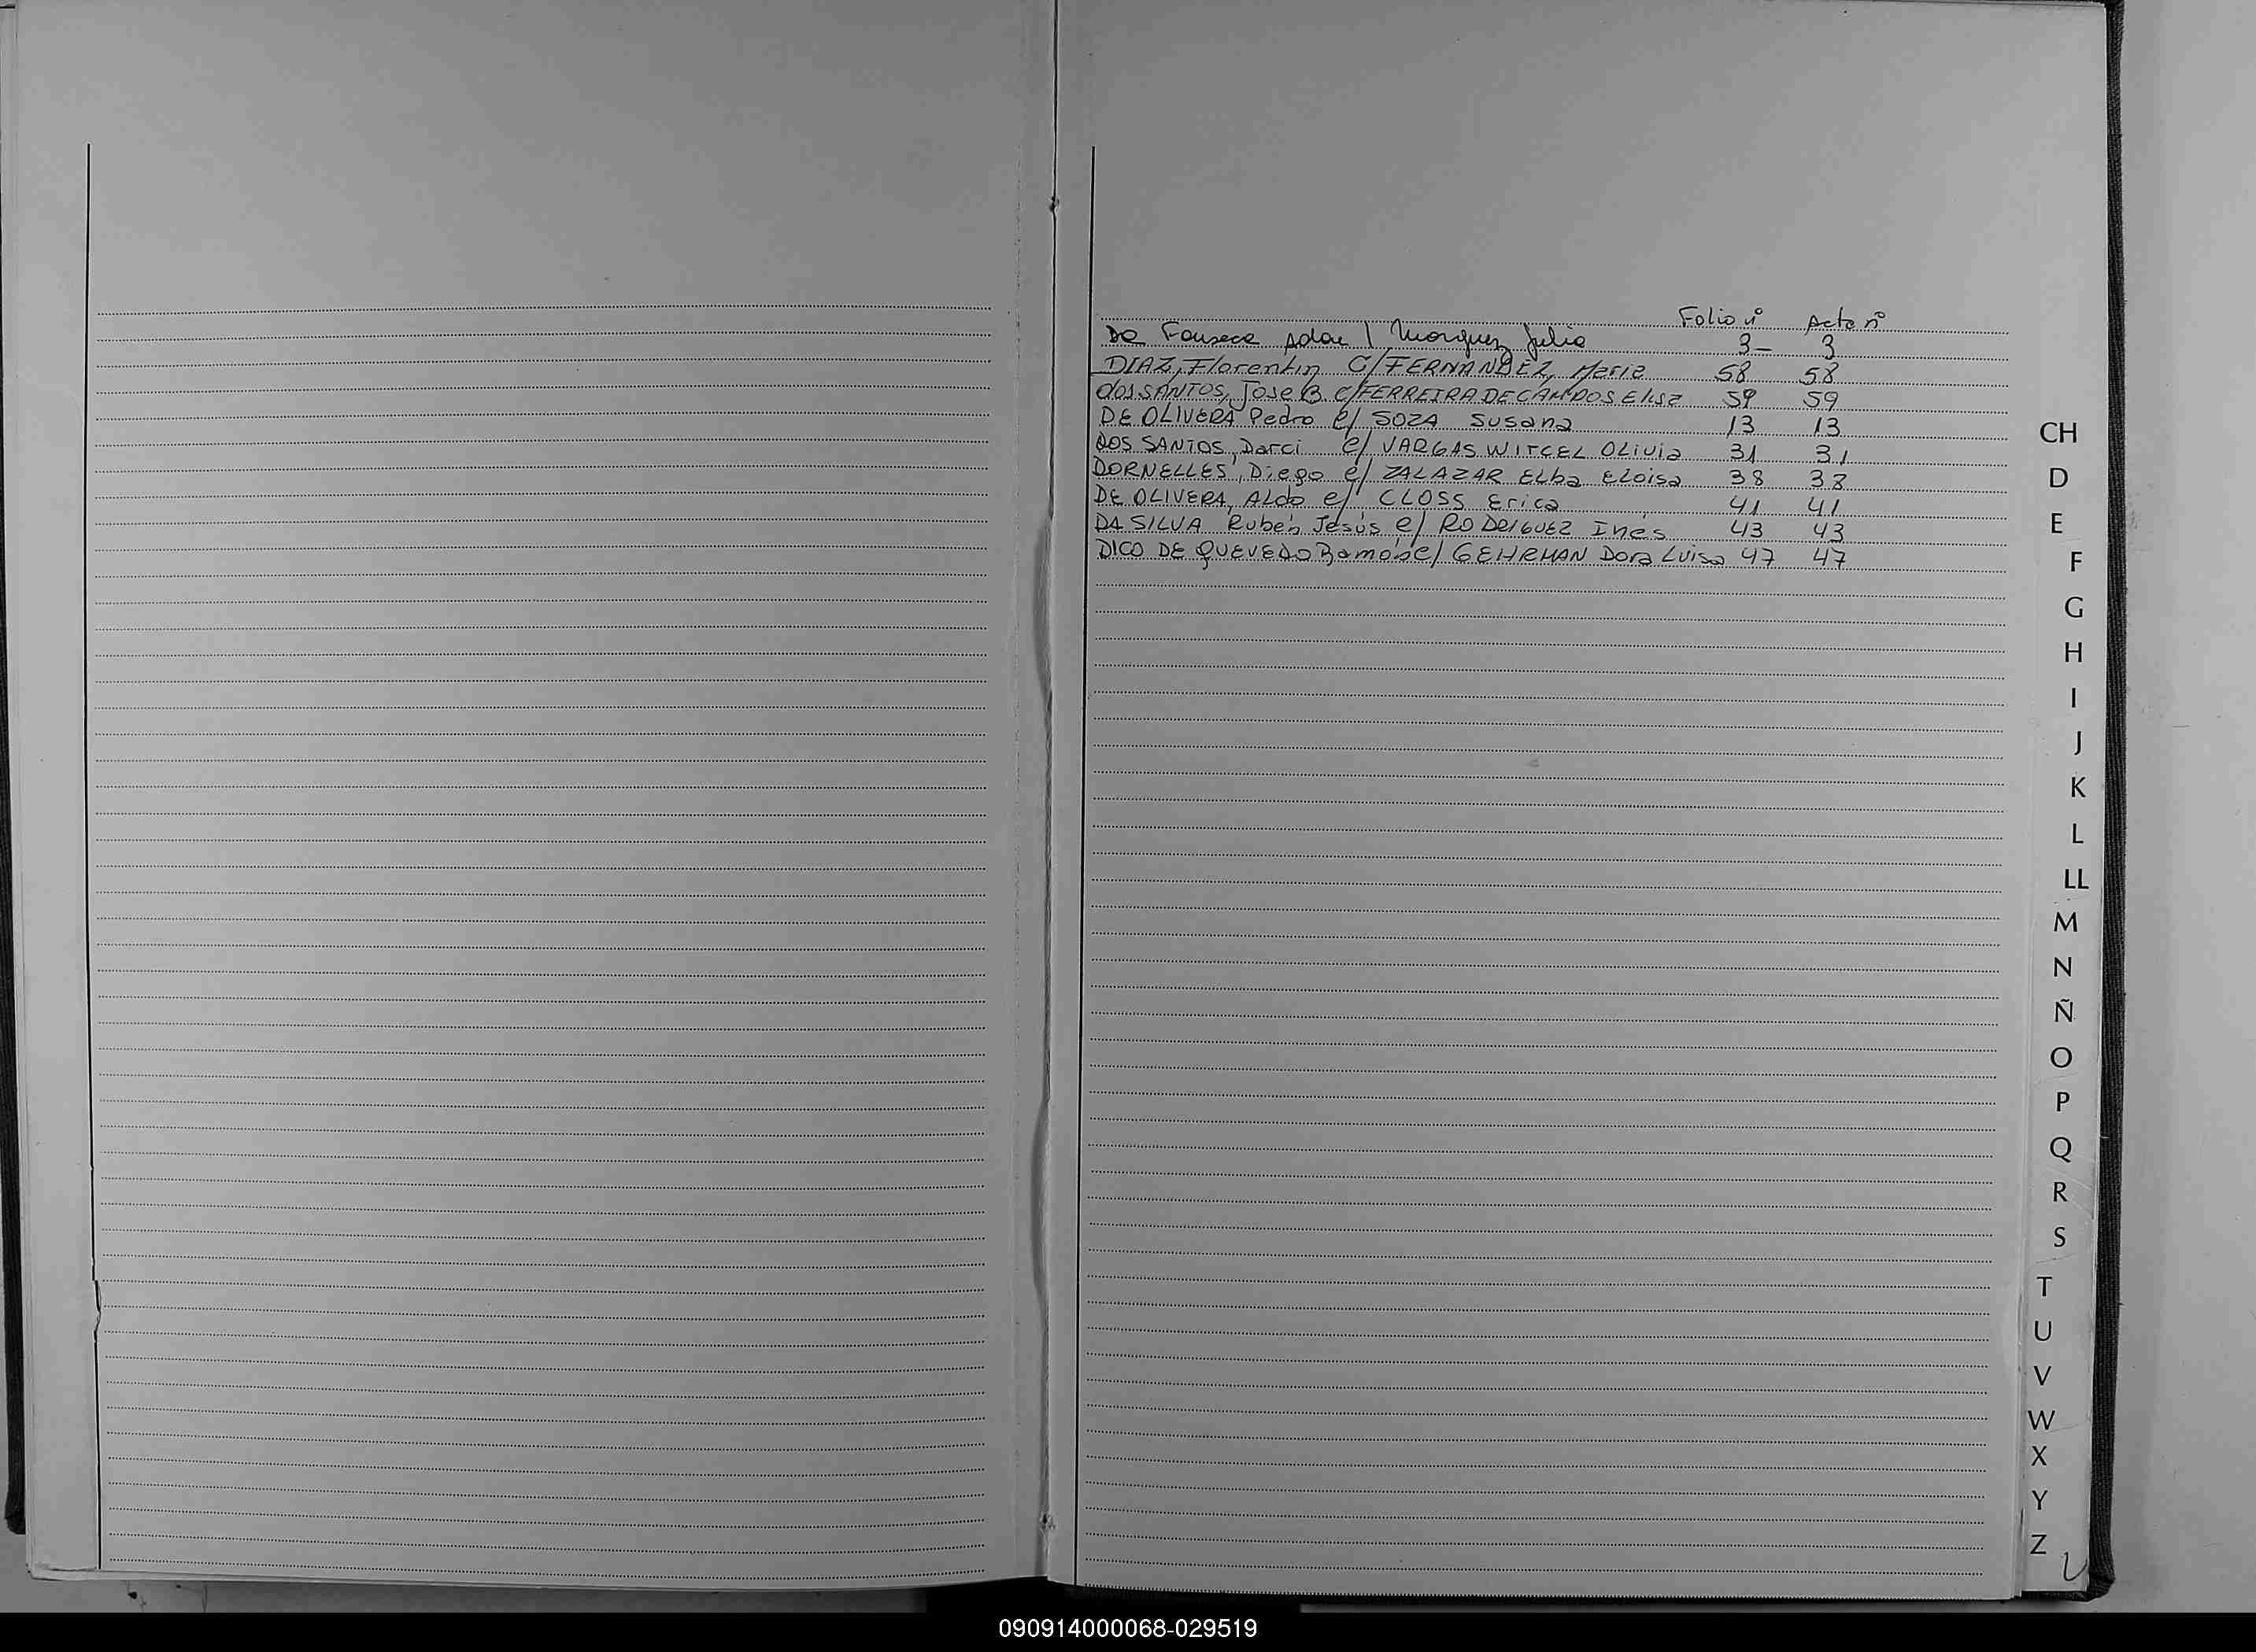 Folio nº Acta nº
Da Fonseca Adan / Marquez Julia 3- 3
DIAZ, Florentin C/ FERNANDEZ, Maria 58 58
dos SANTOS, Jose B. c/ FERREIRA DE CAMPOS Elisa 59 59
DE OLIVERA Pedro c/ SOZA Susana 13 13
DOS SANTOS, Darci c/ VARGAS WITCEL Olivia 31 31
DORNELLES, Diego c/ ZALAZAR Elba Eloisa 38 38
DE OLIVERA, Aldo c/ CLOSS Erica 41 41
DA SILVA Rubén Jesús c/ RODRIGUEZ Inés 43 43
DICO DE QUEVEDO Ramón c/ GEHRMAN Dora Luisa 47 47
CH
D
E
F
G
H
I
J
K
L
LL
M
N
Ñ
O
P
Q
R
S
T
U
V
W
X
Y
Z
090914000068-029519